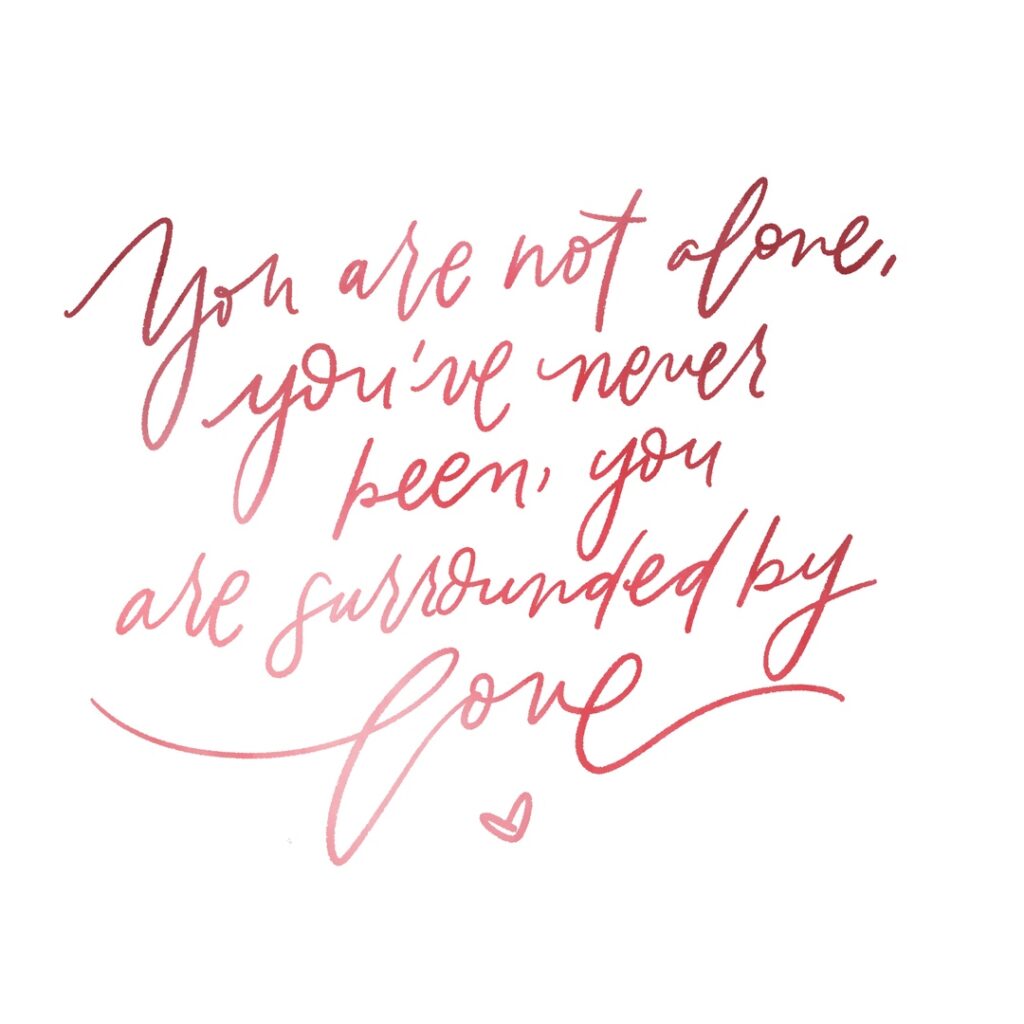 You are not alone,
you've never
been, you
are surrounded by
love